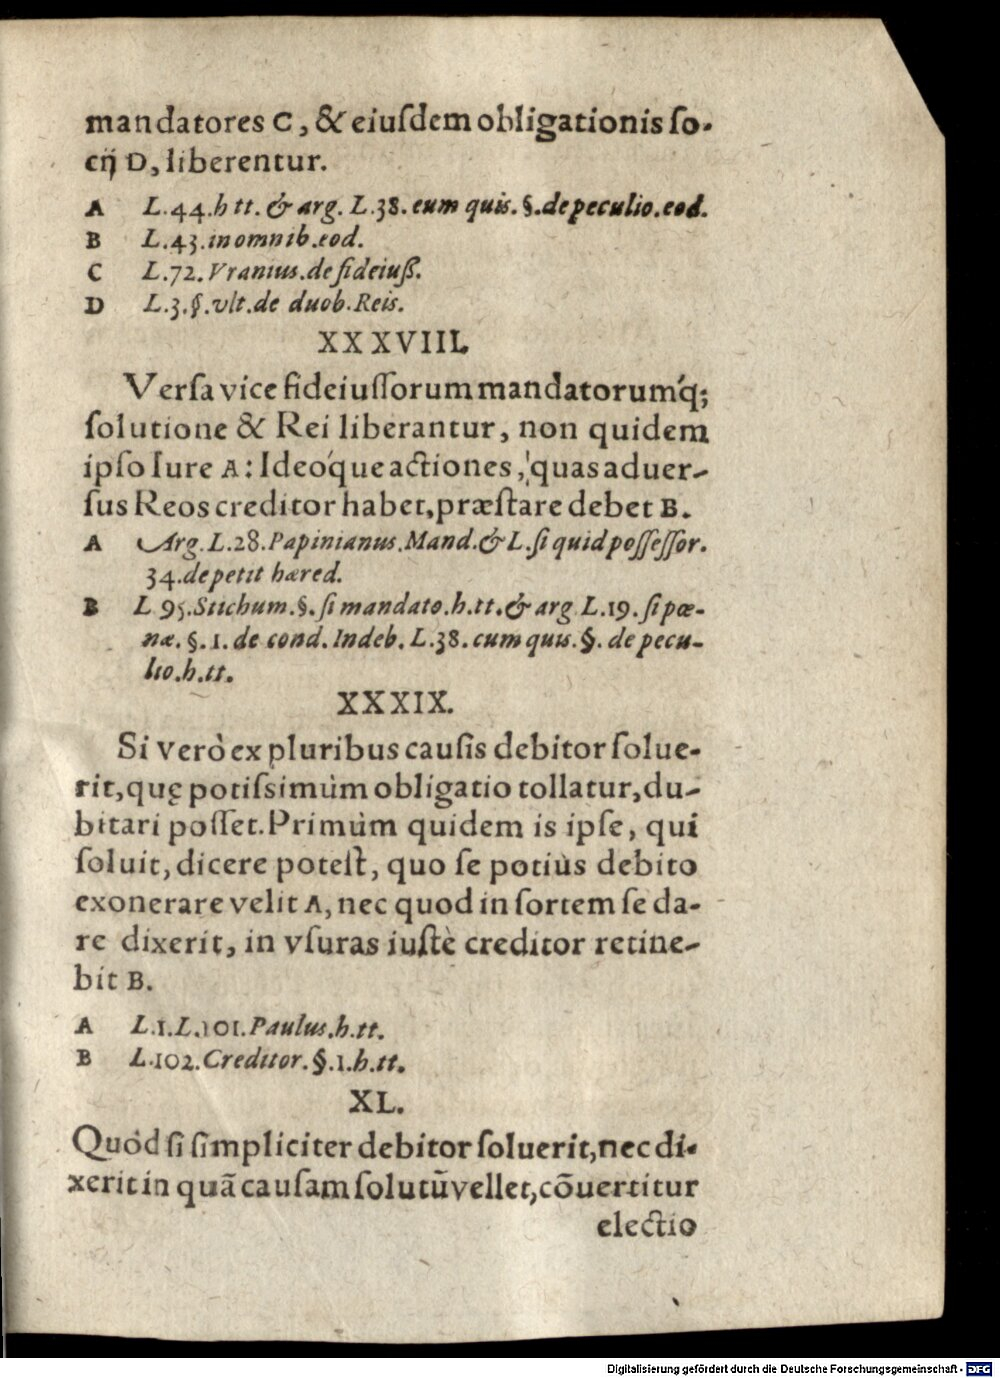 mandatores C, & eiuſdem obligationis ſo-
cij D, liberentur.
A L.44.h tt. & arg. L.38. cum quis. §. de peculio. eod.
B L.43. in omnib. eod.
C L.72. Vranius. de fideiuß.
D L.3. §. vlt. de duob. Reis.
XXXVIII.
Verſa vice fideiuſſorum mandatorumq́;
ſolutione & Rei liberantur, non quidem
ipſo Iure A: Ideoq́ue actiones, quas aduer-
ſus Reos creditor habet, præſtare debet B.
A Arg. L.28. Papinianus. Mand. & L. ſi quid poſſeſſor.
34. de petit hæred.
B L 95. Stichum. §. ſi mandato. h. tt. & arg L.19. ſi pœ-
næ. §. 1. de cond. Indeb. L.38. cum quis. §. de pecu-
lio. h. tt.
XXXIX.
Si verò ex pluribus cauſis debitor ſolue-
rit, quę potiſsimùm obligatio tollatur, du-
bitari poſſet. Primùm quidem is ipſe, qui
ſoluit, dicere poteſt, quo ſe potiùs debito
exonerare velit A, nec quod in ſortem ſe da-
re dixerit, in vſuras iuſtè creditor retine-
bit B.
A L.1. L.101. Paulus. h. tt.
B L.102. Creditor. §. 1. h. tt.
XL.
Quòd ſi ſimpliciter debitor ſoluerit, nec di-
xerit in quã cauſam ſolutũ vellet, cõuertitur
electio
Digitalisierung gefördert durch die Deutsche Forschungsgemeinschaft - DFG